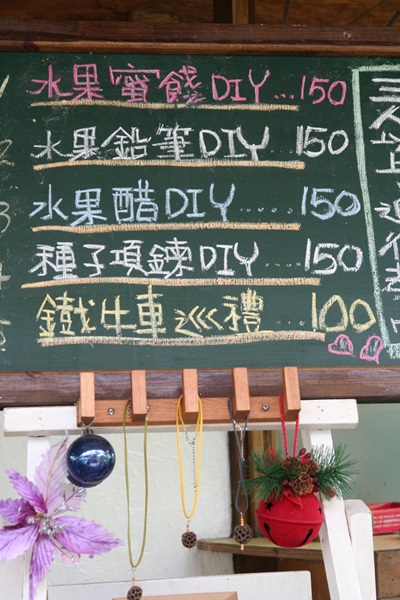 水果蜜餞DIY...150
水果鉛筆DIY 150
水果醋DIY......150
種子項鍊DIY....150
鐵牛車巡禮.....100
三人以上